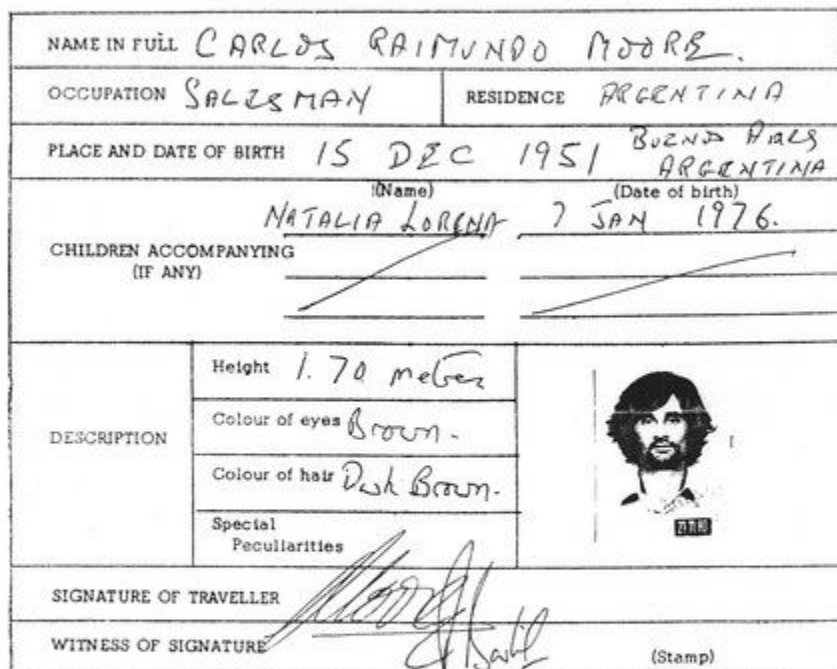 NAME IN FULL CARLOS RAIMUNDO MOORE.
OCCUPATION SALESMAN RESIDENCE ARGENTINA
PLACE AND DATE OF BIRTH 15 DEC 1951 BUENO AIRES
ARGENTINA
(Name) (Date of birth)
NATALIA LORENA 7 JAN 1976.
CHILDREN ACCOMPANYING
(IF ANY)
DESCRIPTION
Height 1.70 metres
Colour of eyes Brown.
Colour of hair Dark Brown.
Special
Peculiarities
SIGNATURE OF TRAVELLER Moore
WITNESS OF SIGNATURE
(Stamp)